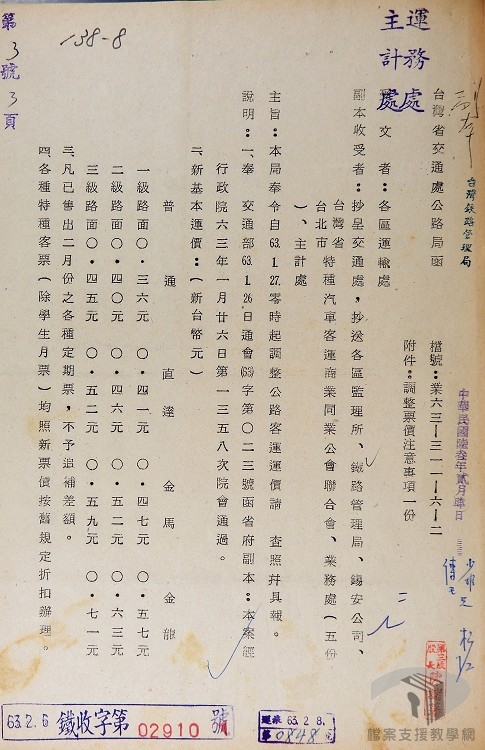 台灣鐵路管理局
副本
運務處
主計處
台灣省交通處公路局函
中華民國陸叁年貳月肆日
檔號：業六三—三一一—六—二
附件：調整票價注意事項一份
文者：各區運輸處
副本收受者：抄呈交通處，抄送各區監理所、鐵路管理局、錫安公司、
台灣省
台北市
特種汽車客運商業同業公會聯合會、業務處（五份
）、主計處
主旨：本局奉令自63.1.27.零時起調整公路客運運價請　查照幷具報。
說明：一、奉　交通部63.1.26日通會(63)字第〇二三號函省府副本：本案經
行政院六三年一月廿六日第一三五八次院會通過。
二、新基本運價：（新台幣元）
普通　直達　金馬　金龍
一級路面〇．三六元　〇．四一元　〇．四七元　〇．五七元
二級路面〇．四〇元　〇．四六元　〇．五二元　〇．六三元
三級路面〇．四五元　〇．五二元　〇．五九元　〇．七一元
三、凡已售出二月份之各種定期票，不予追補差額。
四、各種特種客票（除學生月票）均照新票價按舊規定折扣辦理。
138-8
第3號3頁
63.2.6　鐵收字第02910號
運業63.2.8.
第0848號
檔案支援教學網